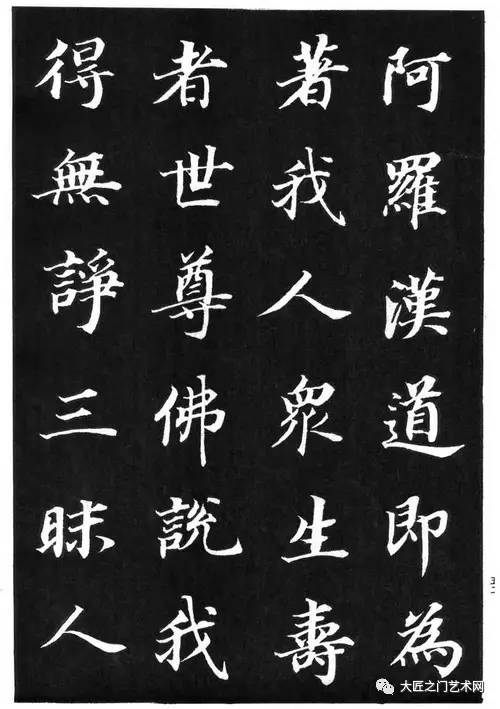 阿羅漢道即為
著我人衆生壽
者世尊佛說我
得無諍三昧人
大匠之门艺术网